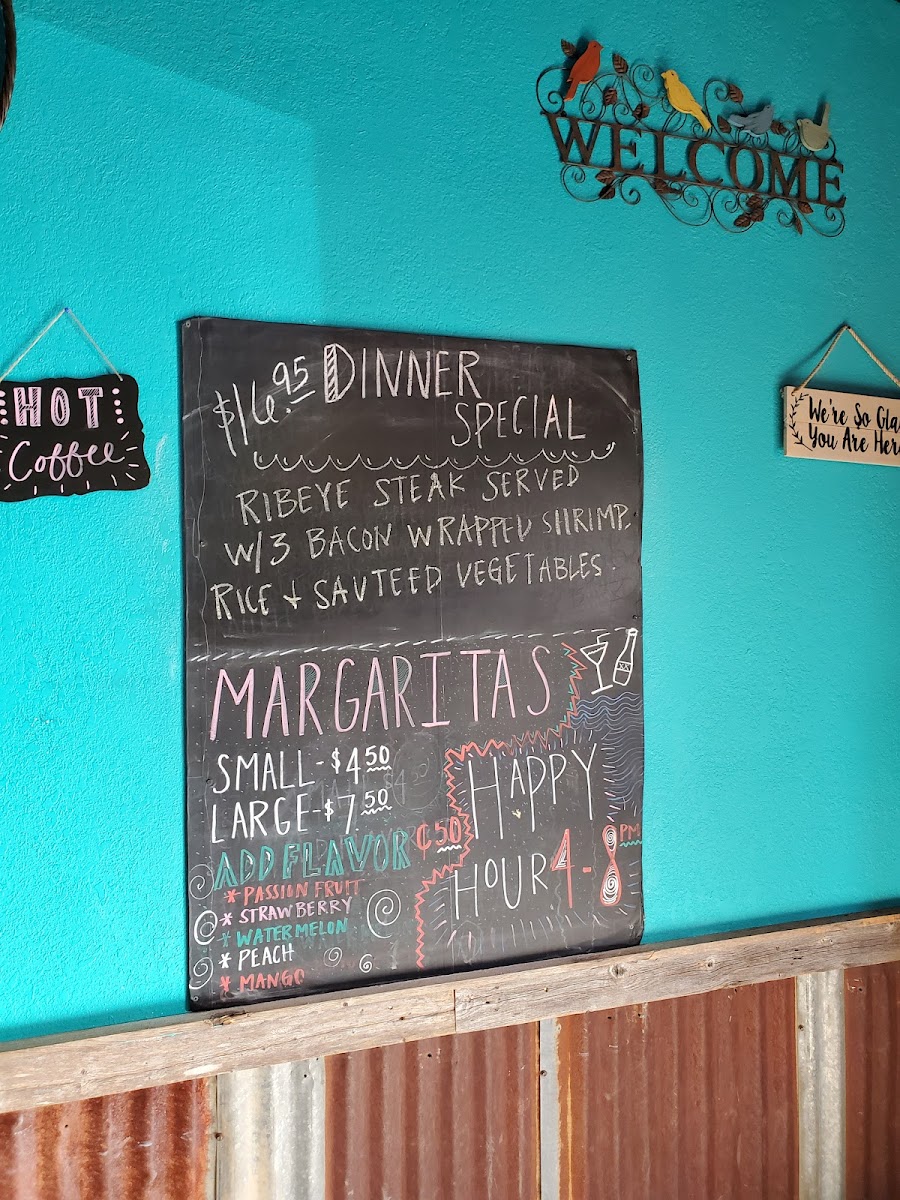 WELCOME
HOT
Coffee
We're So Gla
You Are Her
$16.95 DINNER
SPECIAL
RIBEYE STEAK SERVED
W/3 BACON WRAPPED SHRIMP.
RICE + SAUTEED VEGETABLES.
MARGARITAS
SMALL - $4 50
LARGE - $7 50
ADD FLAVOR ¢50
* PASSION FRUIT
* STRAWBERRY
* WATERMELON
* PEACH
* MANGO
HAPPY
HOUR 4-8 PM